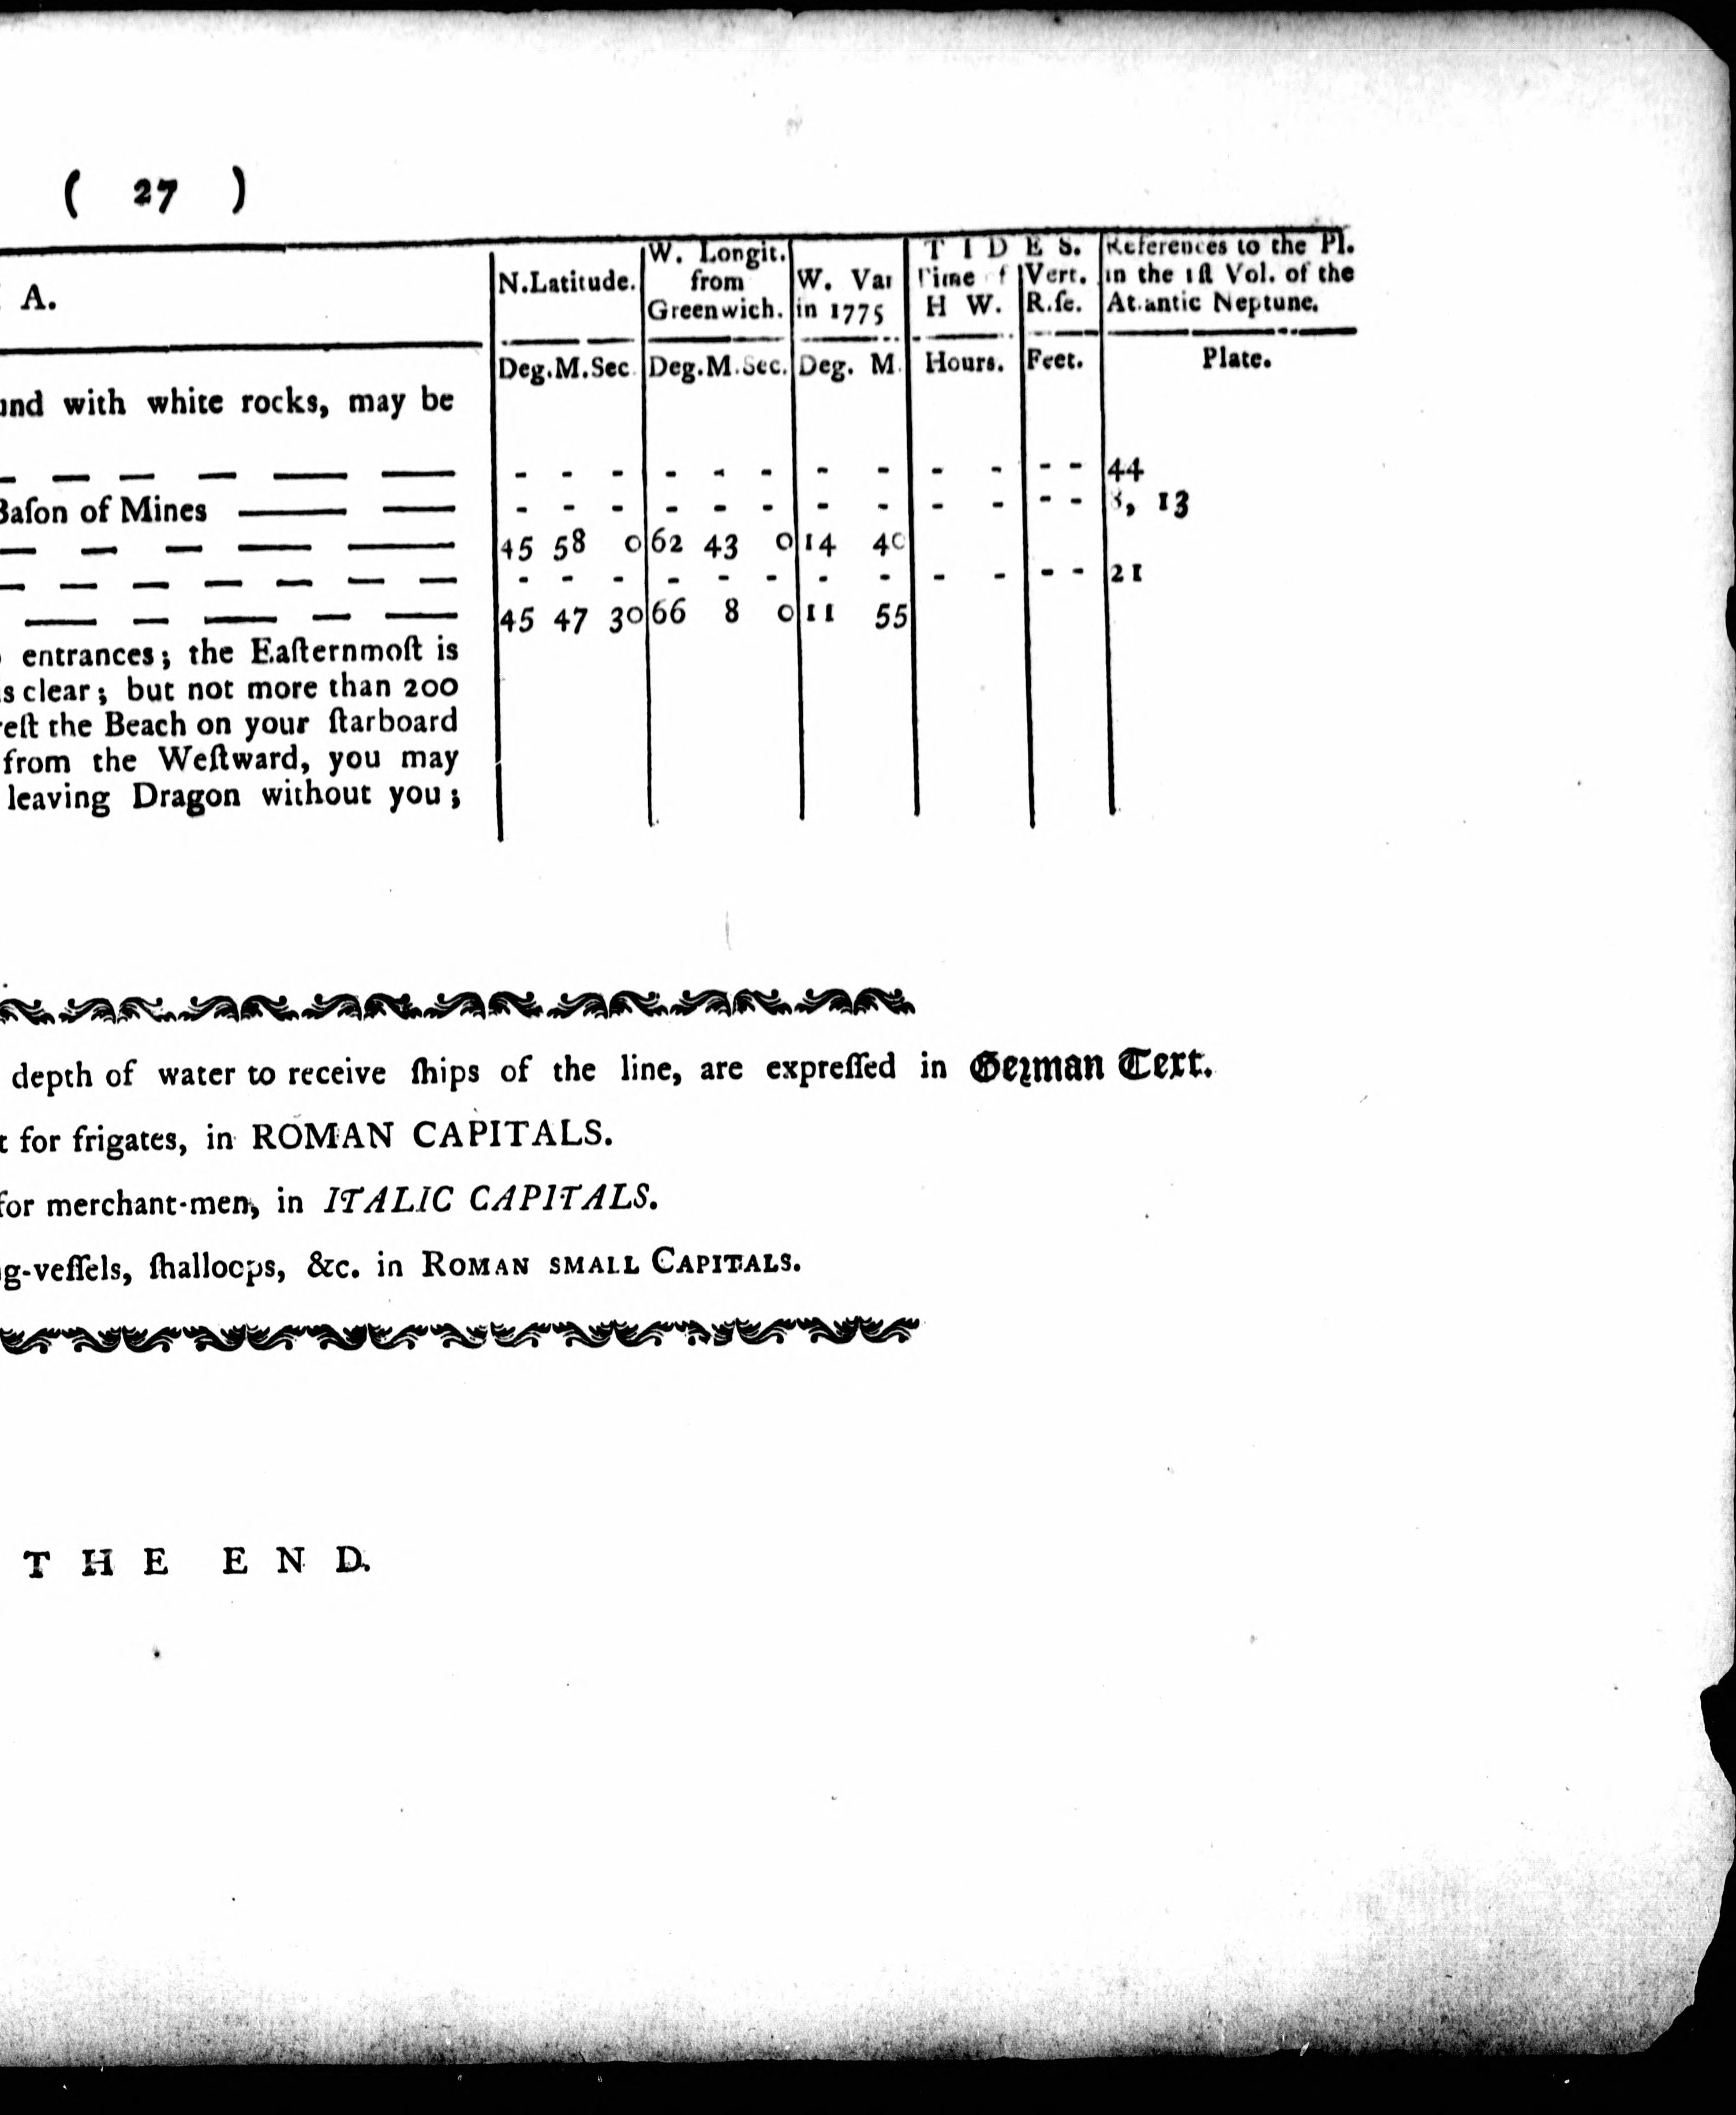 ( 27 )
A. N.Latitude. W. Longit. from Greenwich. W. Var in 1775 TIDES. Time H W. Vert. References to the Pl. in the 1ſt Vol. of the Atlantic Neptune.
Deg.M.Sec. Deg.M.Sec. Deg. M. Hours. Feet. Plate.
with white rocks, may be
— — — — — — - - - - - - - - - - - - 44
Baſon of Mines — — - - - - - - - - - - - - 13
— — — — 45 58 0 62 43 0 14 40
— — — — — — — - - - - - - - - - - - - 21
— — — — — 45 47 30 66 8 0 11 55
entrances; the Eaſternmoſt is
clear; but not more than 200
the Beach on your ſtarboard
from the Weſtward, you may
leaving Dragon without you;
depth of water to receive ſhips of the line, are expreſſed in German Text.
for frigates, in ROMAN CAPITALS.
for merchant-men, in ITALIC CAPITALS.
g-veſſels, ſhalloops, &c. in ROMAN SMALL CAPITALS.
THE END.